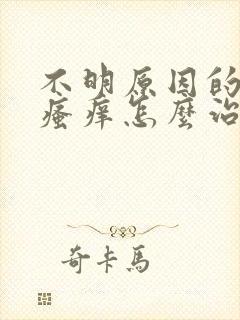 不明原因的
瘙痒怎麽治
奇卡馬